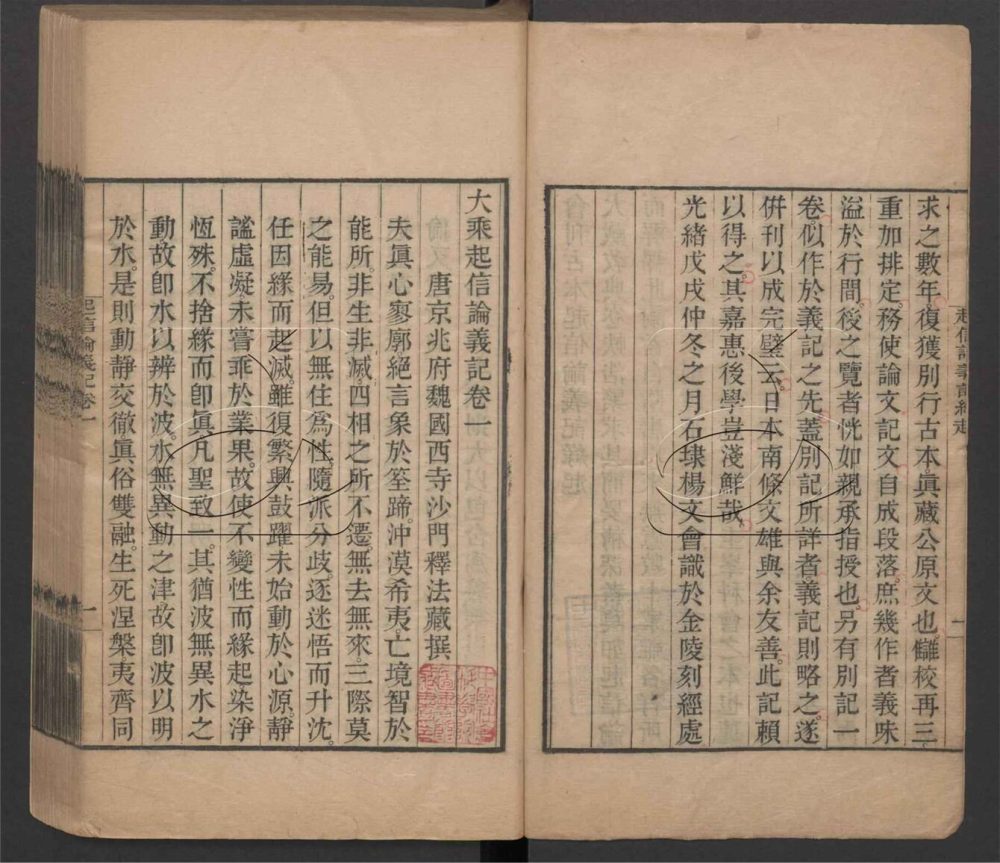 求之數年復獲別行古本眞藏公原文也讎校再三。
重加排定務使論文記文自成段落庶幾作者義味
溢於行間後之覽者恍如親承指授也另有別記一
卷似作於義記之先蓋別記所詳者義記則略之遂
倂刊以成完璧云日本南條文雄與余友善此記賴
以得之其嘉惠後學豈淺鮮哉
光緒戊戌仲冬之月石埭楊文會識於金陵刻經處
大乘起信論義記卷一
唐京兆府魏國西寺沙門釋法藏撰
夫眞心寥廓絕言象於筌蹄。沖漠希夷亡境智於
能所。非生非滅。四相之所不遷。無去無來。三際莫
之能易。但以無住爲性。隨派分歧。逐迷悟而升沈。
任因緣而起滅。雖復繁興鼓躍。未始動於心源。靜
謐虛凝未嘗乖於業果。故使不變性而緣起染淨
恆殊。不捨緣而卽眞。凡聖致一。其猶波無異水之
動。故卽水以辨於波。水無異動之津。故卽波以明
於水。是則動靜交徹眞俗雙融。生死涅槃夷齊同
起信論義記卷一
一